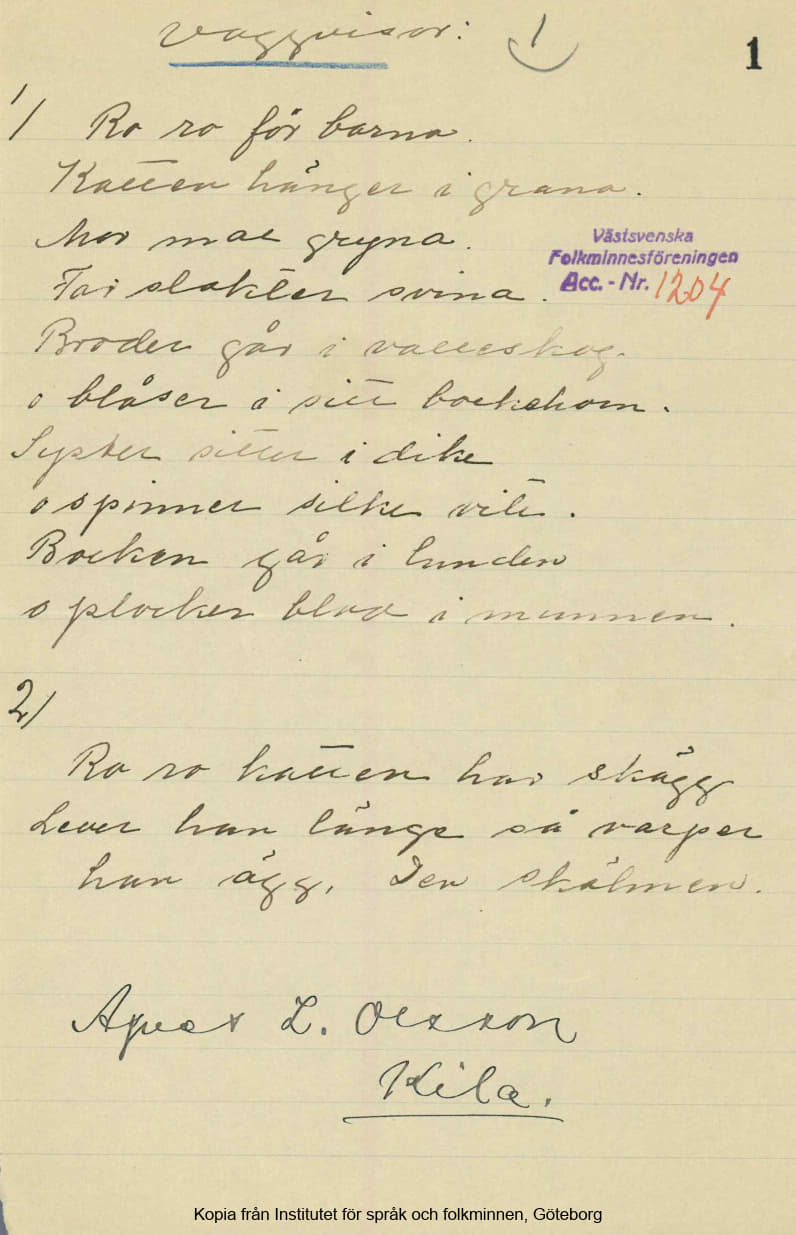 Vaggvisor: 1
1
1/ Ro ro för barna.
Katten hänger i grana.
Mor mal gryna.
Far slakter svina.
Västsvenska
Folkminnesföreningen
Acc. - Nr. 1204
Broder går i valleskog.
o blåser i sitt bockehorn.
Syster sitter i dike
o spinner silke vite.
Bocken går i lunden
o plocker blad i munnen.
2/
Ro ro katten har skägg
Lever han länge så varper
han ägg. Den skälmen.
Agnes L. Olsson
Kila.
Kopia från Institutet för språk och folkminnen, Göteborg